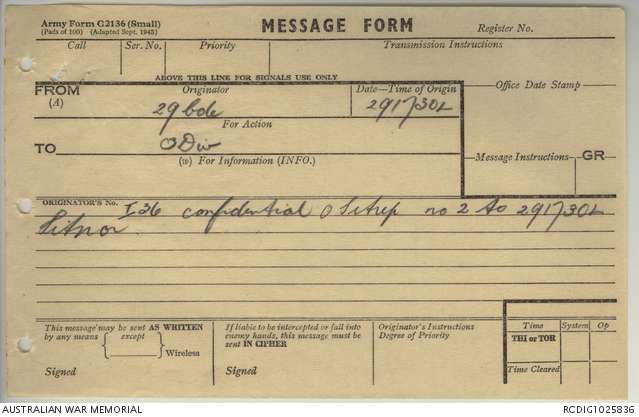 Army Form C2136 (Small)
(Pads of 100) (Adapted Sept. 1943)
MESSAGE FORM
Register No.
Call Ser. No. Priority Transmission Instructions
ABOVE THIS LINE FOR SIGNALS USE ONLY
FROM (A) Originator Date—Time of Origin Office Date Stamp
29 bde 291730L
For Action
TO Div
(w) For Information (INFO.) Message Instructions GR
ORIGINATOR'S No. I36 confidential O Sitrep no 2 to 291730L
Sitnor
This message may be sent AS WRITTEN by any means except Wireless
Signed
If liable to be intercepted or fall into enemy hands, this message must be sent IN CIPHER
Signed
Originator's Instructions
Degree of Priority
Time System Op
THI or TOR
Time Cleared
AUSTRALIAN WAR MEMORIAL RCDIG1025836